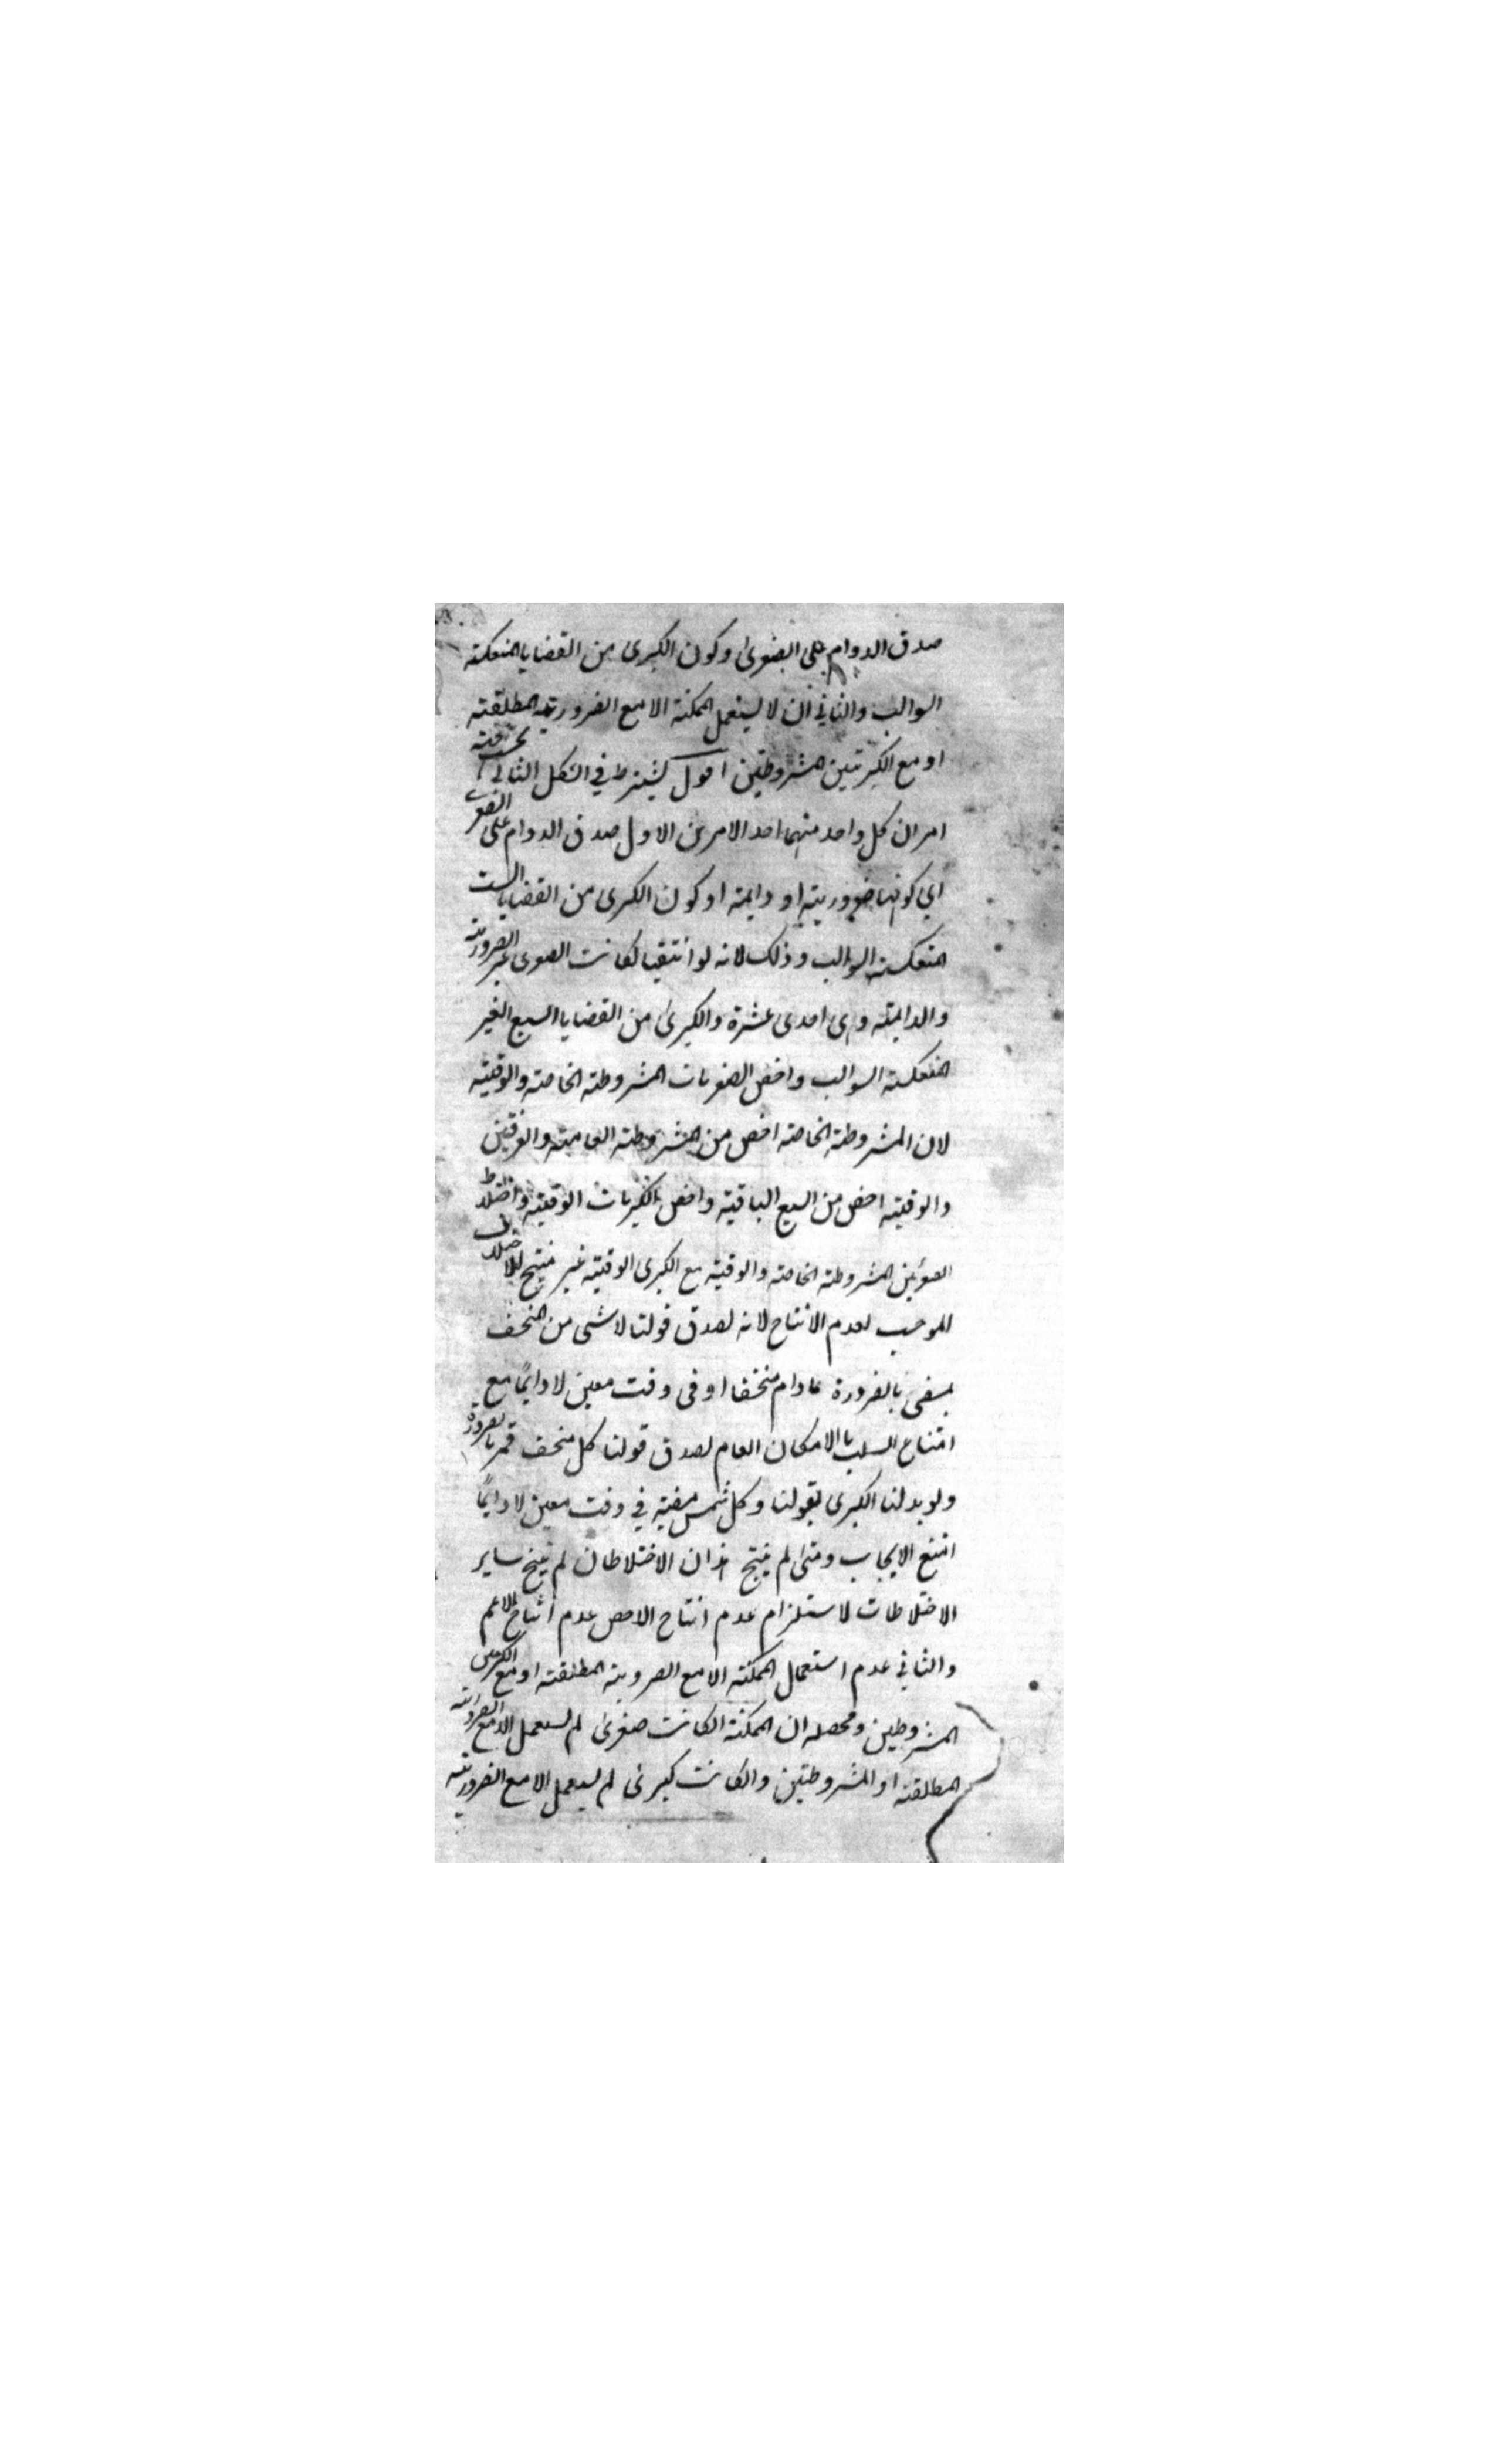 صدق الدوام على الصغرى وكون الكبرى من القضايا المنعكسة
السوالب والثاني ان لا يستعمل الممكنة الا مع الضرورية المطلقة
او مع الكبرتين المشروطتين اقول يشترط في الشكل الثاني بحسب
امران كل واحد منهما احد الامرين الاول صدق الدوام على الصغرى
اي كونها ضرورية او دايمة او كون الكبرى من القضايا الست
المنعكسة السوالب وذلك لانه لو انتفيا لكانت الصغرى غير الضرورية
والدايمة وهي احدى عشرة والكبرى من القضايا السبع الغير
المنعكسة السوالب واخص الصغريات المشروطة الخاصة والوقتية
لان المشروطة الخاصة اخص من المشروطة العامة والعرفيتين
والوقتية اخص من السبع الباقية واخص الكبريات الوقتية واختلاط
الصغريين المشروطة الخاصة والوقتية مع الكبرى الوقتية غير منتج للاختلاف
الموجب لعدم الانتاج لانه لصدق قولنا لا شى من المنخسف
بمضى بالضرورة مادام منخسفا او فى وقت معين لا دايمًا مع
امتناع السلب بالامكان العام لصدق قولنا كل منخسف قمر بالضرورة
ولو بدلنا الكبرى بقولنا وكل شمس مضية في وقت معين لا دايمًا
امتنع الايجاب ومتى لم ينتج هذان الاختلاطان لم ينتج ساير
الاختلاطات لاستلزام عدم انتاج الاخص عدم انتاج الاعم
والثاني عدم استعمال الممكنة الا مع الضرورية المطلقة او مع الكبريين
المشروطتين ومحصله ان الممكنة ان كانت صغرى لم يستعمل الا مع الضرورية
المطلقة او المشروطتين وان كانت كبرى لم يستعمل الا مع الضرورية